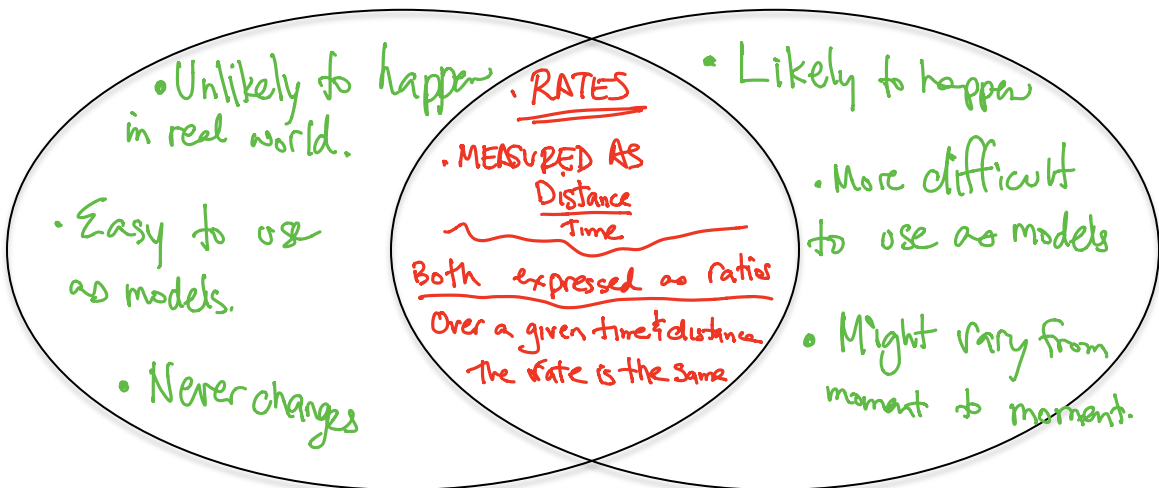 • Unlikely to happen
in real world.
• Easy to use
as models.
• Never changes
• RATES
• MEASURED AS
Distance
Time
Both expressed as ratios
Over a given time & distance
the rate is the same
• Likely to happen
• More difficult
to use as models
• Might vary from
moment to moment.